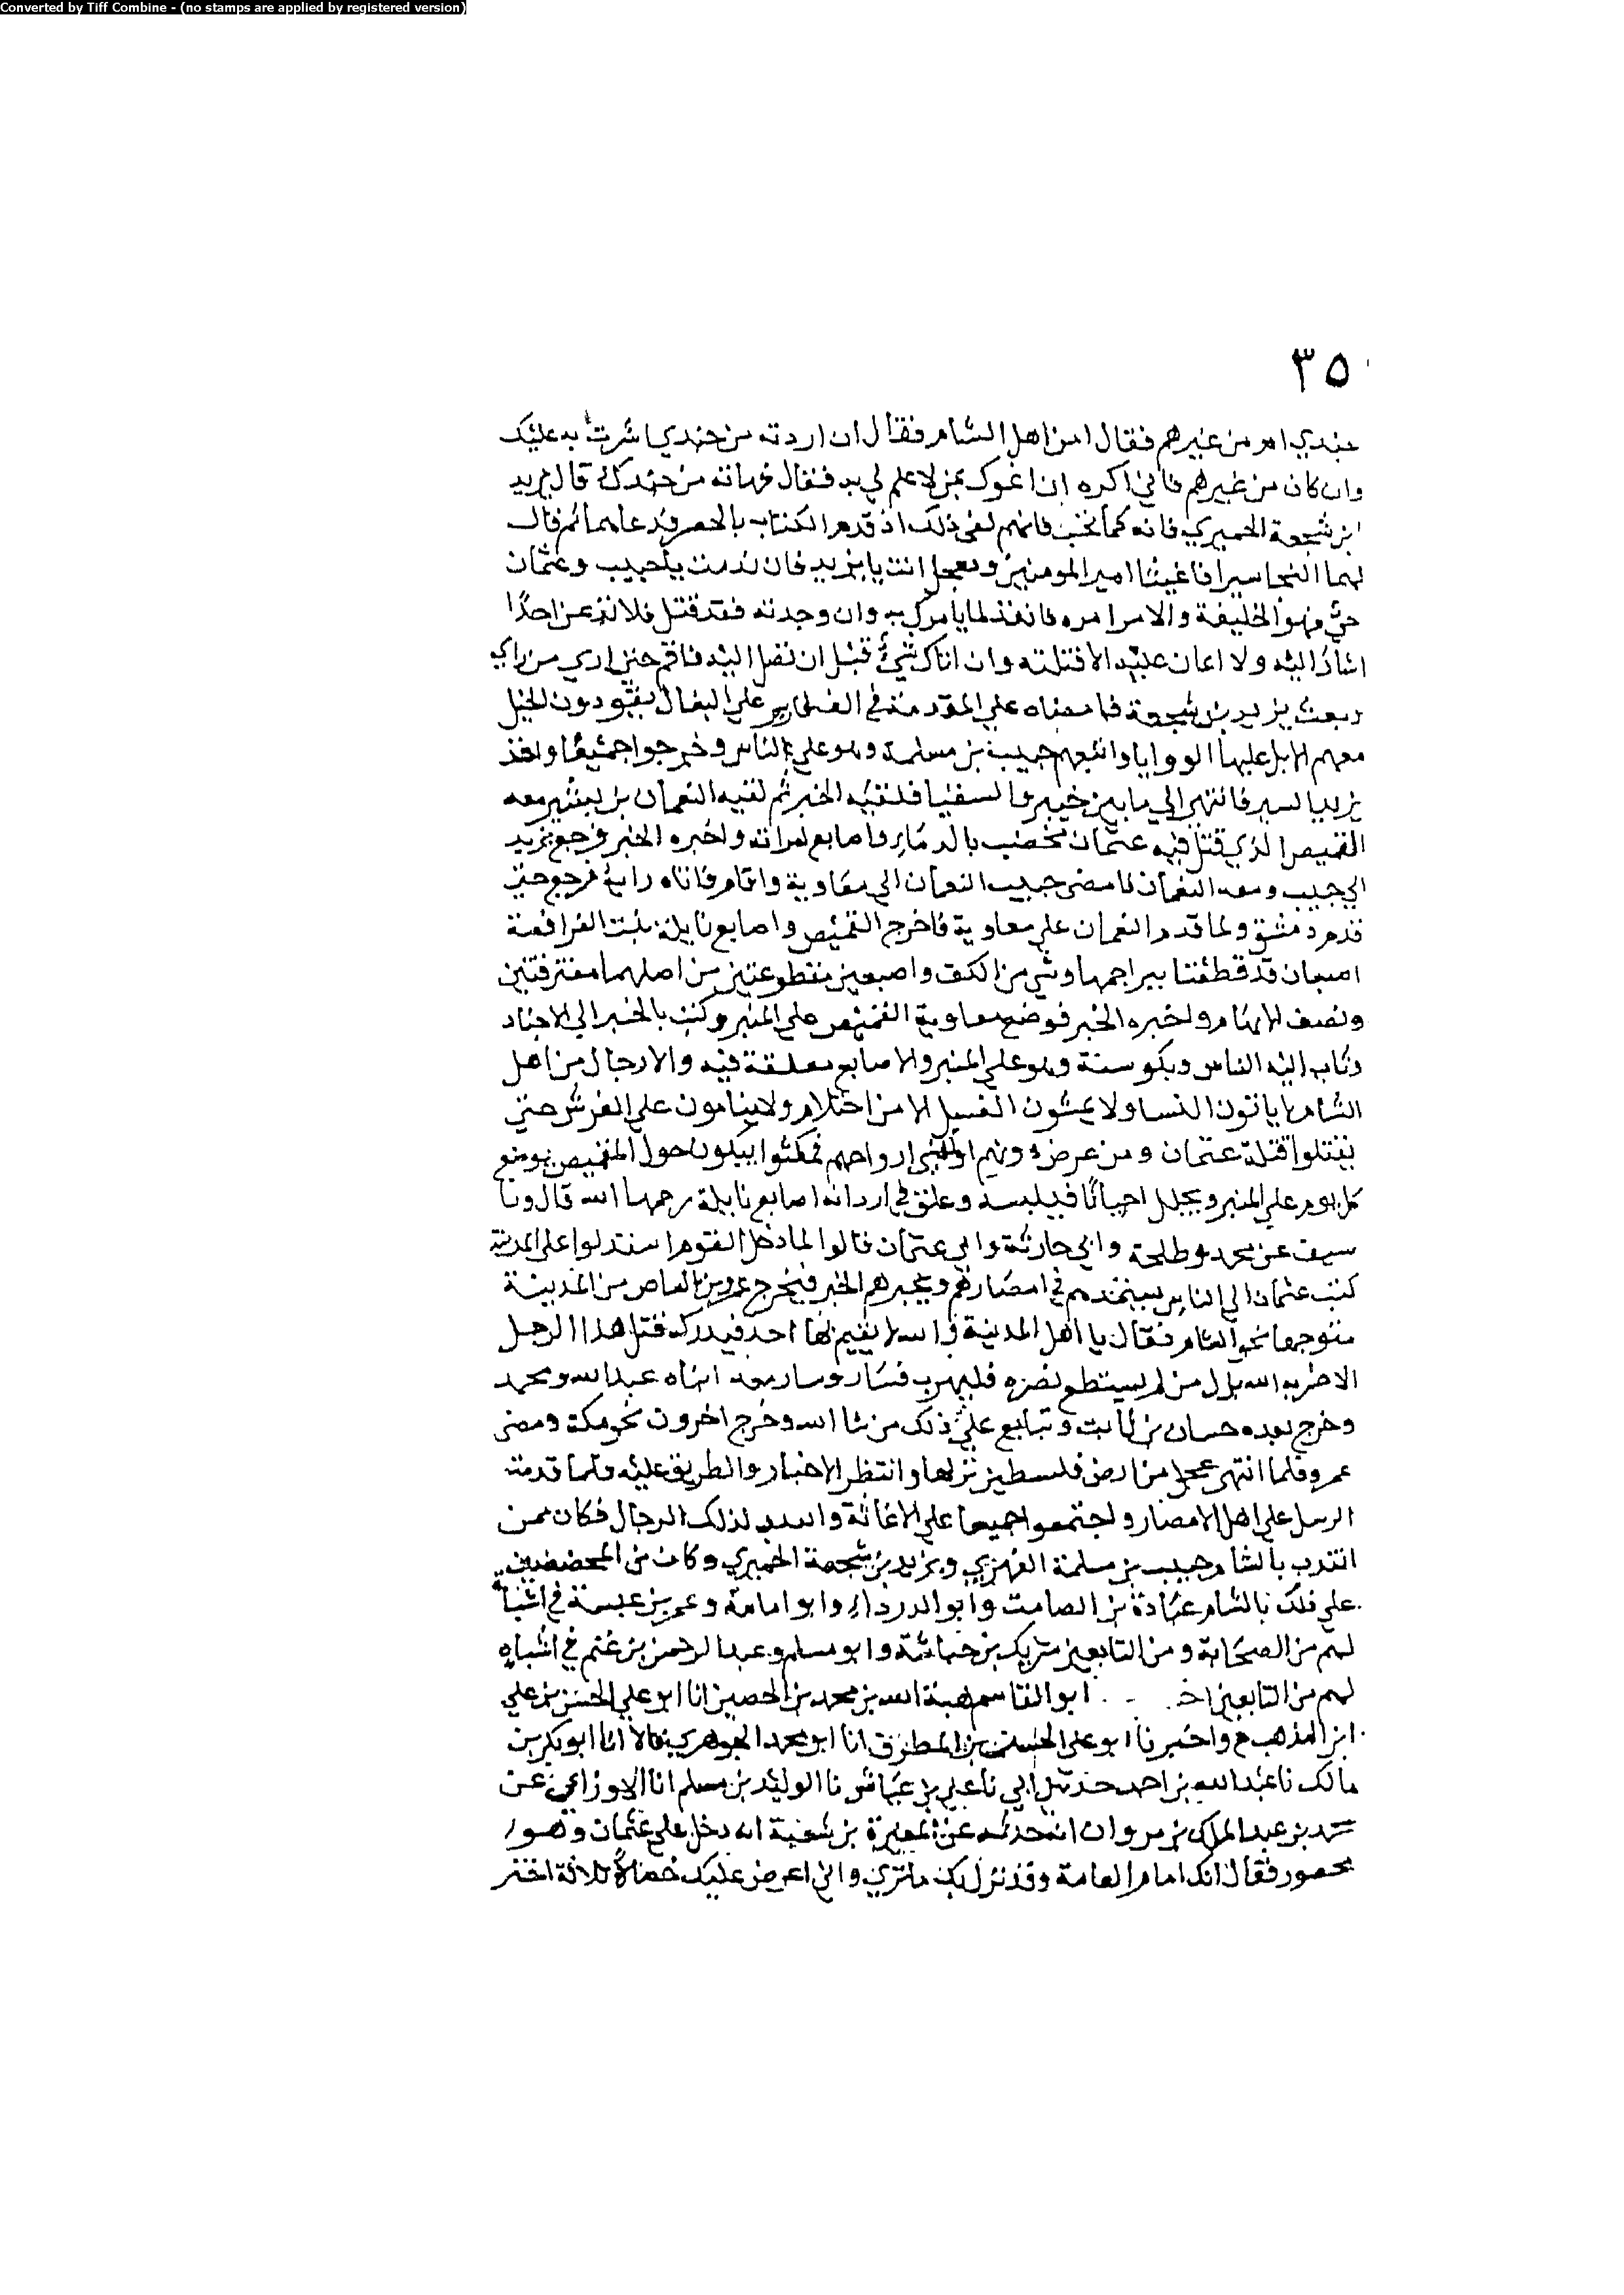 Converted by Tiff Combine - (no stamps are applied by registered version)
٣٥
جندي ام من غيرهم فقال من اهل الشام فقال ان اردته من جندي اشرت به عليك
وان كان من غيرهم فاني اكره ان اغوك بمن لا علم لي به فقال فهاته من جندك قال يزيد
ابن شجعة الحميري فانه كما تحب فانهم لفي ذلك اذ قدم الكتاب بالحصر فدعاهما ثم قال
لهما النجا سيرا فاغيثا امير المومنين وتعجل انت يا يزيد فان قدمت يا حبيب وعثمان
حي فهو الخليفة والامر امره فانفذ لما يامرك به وان وجدته قد قتل فلا تدعن احدا
اشار اليه ولا اعان عليه الا قتلته وان اتاك شي قبل ان تصل اليه فاقم حتى ارى من راي
وبعث يزيد بن شجعة فامضاه على المقدمة في الف على البغال يقودون الخيل
معهم الابل عليها الروايا واتبعهم حبيب بن مسلمة وهو على الناس وخرجوا جميعا واغذ
يزيد السير فانتهى الى ما بين خيبر والسقيا فلقيه الخبر ثم لقيه النعمان بن بشير معه
القميص الذي قتل فيه عثمان مخضب بالدماء واصابع امراته واخبره الخبر فرجع يزيد
الى حبيب ومعه النعمان فامضى حبيب النعمان الى معاوية واقام فاتاه رايه فرجع حتى
قدم دمشق ولما قدم النعمان على معاوية فاخرج القميص واصابع نايلة بنت الفرافصة
اصبعان قد قطعتا ببراجمها وشي من الكف واصبعين مقطوعتين من اصلهما مفترقتين
ونصف الابهام واخبره الخبر فوضع معاوية القميص على المنبر وكتب بالخبر الى الاجناد
وثاب اليه الناس وبكو سنة وهو على المنبر والاصابع معلقة فيه والا رجال من اهل
الشام لا ياتون النسا ولا يمسون الغسل الا من احتلام ولا ينامون على الفرش حتى
يقتلوا قتلة عثمان ومن عرض دونهم او تفنى ارواحهم فمكثوا يبكون حول القميص يوضع
كل يوم على المنبر ويجلل احيانا فيلبسه وعلق في اردانه اصابع نايلة رحمها الله قال ونا
سيف عن محمد وطلحة وابي حارثة وابي عثمان قالوا لما دخل القوم استدلوا على المدينة
كتب عثمان الى الناس يستمدهم في امصارهم ويخبرهم الخبر فيخرج عمرو بن العاص من المدينة
متوجها نحو الشام فقال يا اهل المدينة والله لا يقيم بها احد فيدركه قتل هذا الرجل
الا ضربه الله بذل من لم يستطع نصره فليهرب فسار وسار معه ابناه عبدالله ومحمد
وخرج بعده حسان بن ثابت وتبايع على ذلك من شا الله وخرج اخرون نحو مكة ومضى
عمرو فلما انتهى عجل من ارض فلسطين نزلها وانتظر الاخبار والطريق عليه ولما قدمت
الرسل على اهل الامصار واجتمعوا جميعا على الاغاثة وانتدب لذلك الرجال فكان ممن
انتدب بالشام حبيب بن مسلمة الفهري ويزيد بن شجعة الحميري وكان من المحضضين
على ذلك بالشام عبادة بن الصامت وابو الدرداء وابو امامة وعمرو بن عبسة في اشباه
لهم من الصحابة ومن التابعين شريك بن خباشة وابو مسلم وعبد الرحمن بن غنم في اشباه
لهم من التابعين ابو القاسم هبة الله بن محمد بن الحصين انا ابو علي الحسن بن علي
ابن المذهب ح واخبرنا ابو علي الحسن بن المظفر انا ابو محمد الجوهري قالا انا ابو بكر بن
مالك نا عبدالله بن احمد حدثني ابي نا علي بن عياش نا الوليد بن مسلم انا الاوزاعي عن
محمد بن عبد الملك بن مروان انه حدثه عن المغيرة بن شعبة انه دخل على عثمان وهو
محصور فقال انك امام العامة وقد نزل بك ما ترى واني اعرض عليك خصالا ثلاثة اختر